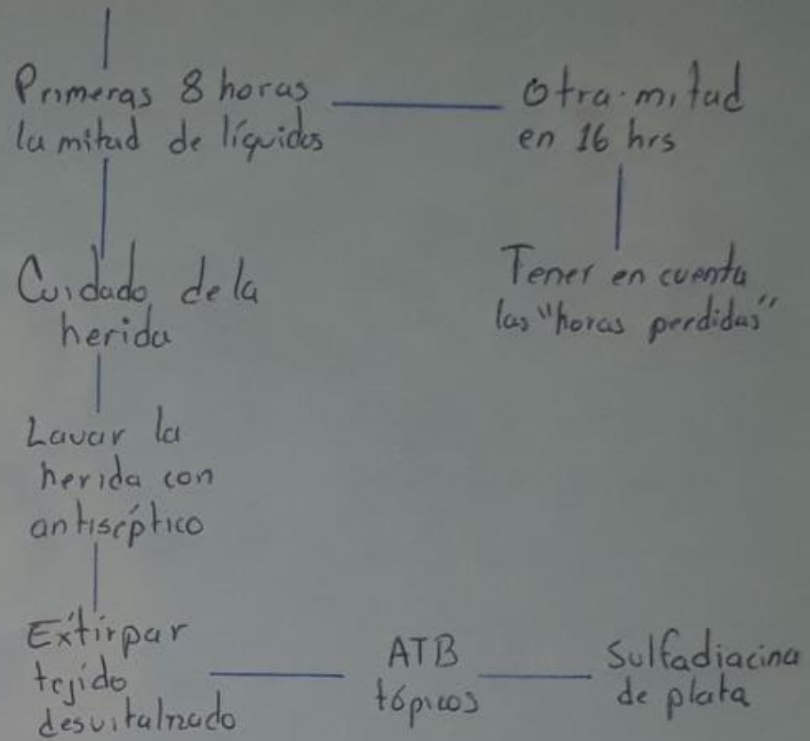 Primeras 8 horas
la mitad de líquidos
Otra mitad
en 16 hrs
Tener en cuenta
las "horas perdidas"
Cuidado de la
herida
Lavar la
herida con
antiséptico
Extirpar
tejido
desvitalizado
ATB
tópicos
Sulfadiacina
de plata